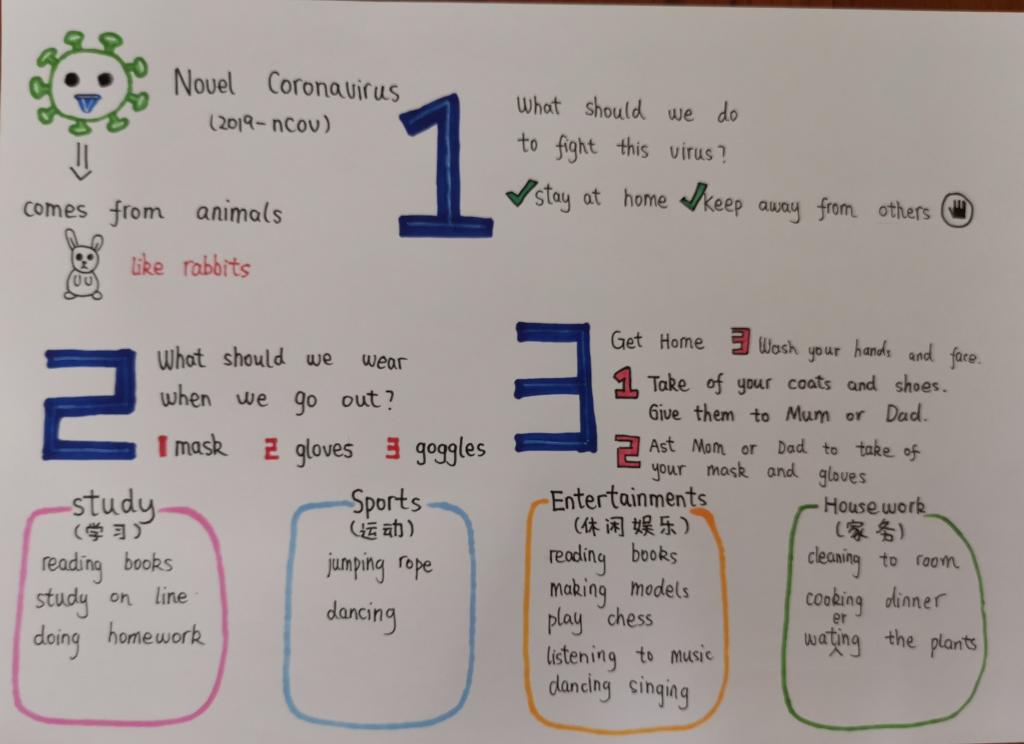 Novel Coronavirus
(2019-nCoV)
comes from animals
like rabbits
1
What should we do
to fight this virus?
✓stay at home ✓keep away from others
2
What should we wear
when we go out?
1 mask 2 gloves 3 goggles
3
Get Home 3 Wash your hands and face.
1 Take of your coats and shoes.
Give them to Mum or Dad.
2 Ast Mom or Dad to take of
your mask and gloves
study
(学习)
reading books
study on line
doing homework
Sports
(运动)
jumping rope
dancing
Entertainments
(休闲娱乐)
reading books
making models
play chess
listening to music
dancing singing
Housework
(家务)
cleaning to room
cooking dinner
er
wating the plants